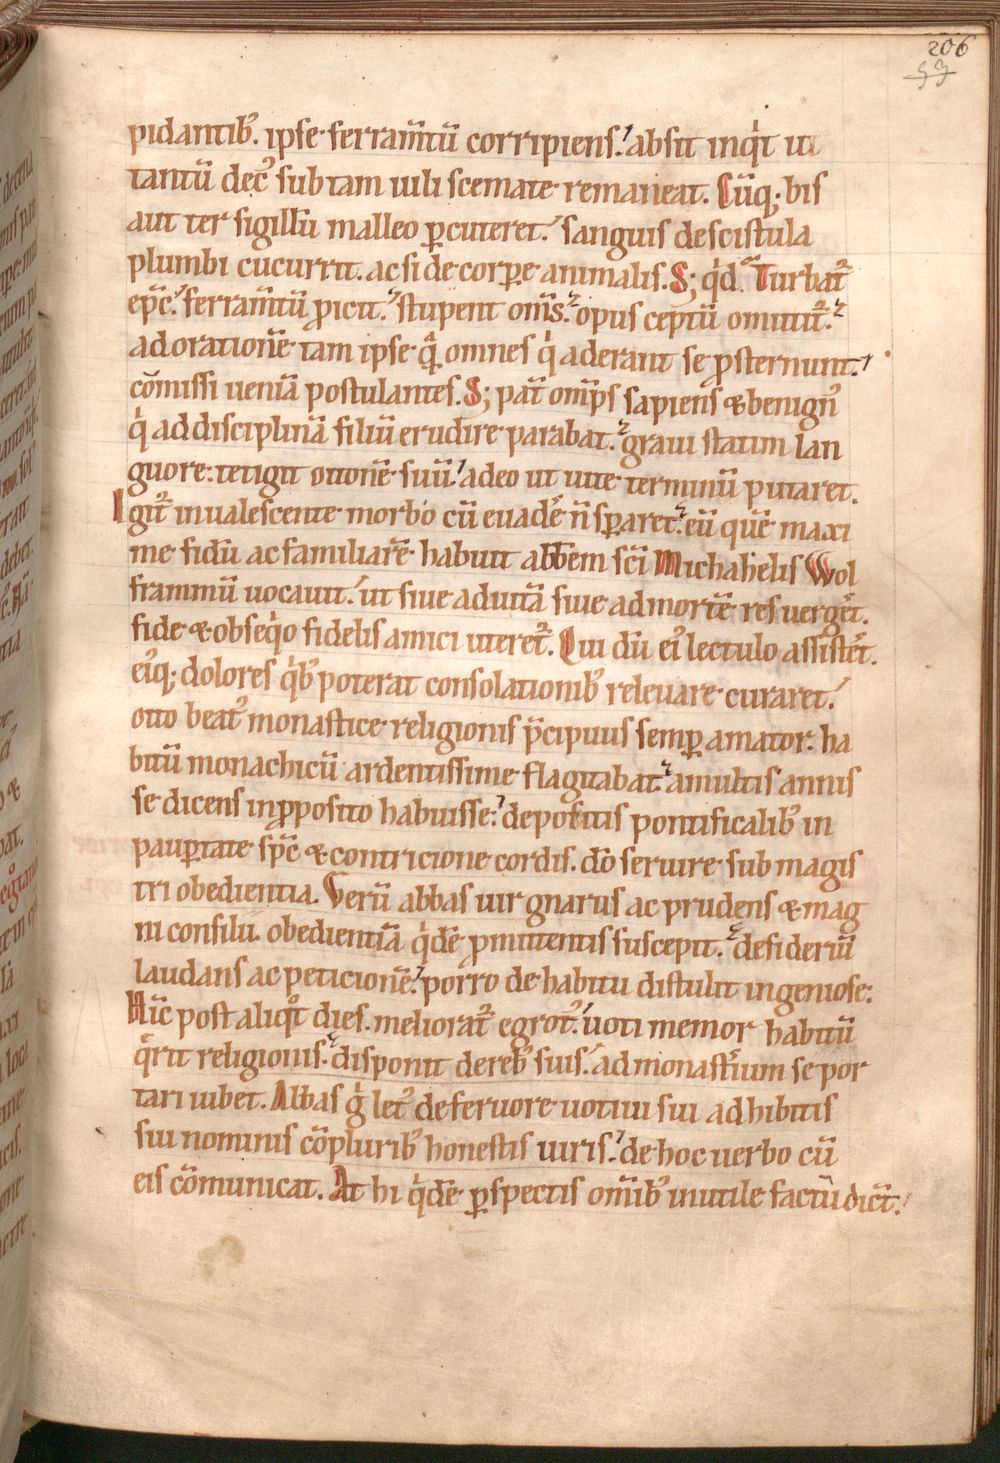 206
53
pidantib᷒. ipse ferram̅tu̅ corripiens. absit inqͥt ut
tantu̅ dec᷒ sub tam uili scemate remaneat. Cu̅q; bis
aut ter sigillu̅ malleo ꝑcuteret. sanguis de scistula
plumbi cucurrit. ac si de corꝑe animalis. S; qͥd. Turbat᷑
ep̅c. ferram̅tu̅ ꝓicit. stupent om̅s. opus ceptu̅ omittit᷑.
ad oratione̅ tam ipse qͣ̅ omnes qͥ aderant se ꝓsternunt.
co̅missi uenia̅ postulantes. S; pat̅ om̅ps sapiens & benign᷒
qͥ ad disciplina̅ filiu̅ erudire parabat. graui statim lan
guore tetigit ottone̅ suu̅. adeo ut uite terminu̅ putaret.
Igit᷑ inualescente morbo cu̅ euade̅ n̅ sꝑaret. eu̅ que̅ maxi
me fidu̅ ac familiare̅ habuit abbem sc̅i Michahelis Wol
frammu̅ uocauit. ut siue ad uita̅ siue ad morte̅ res uerget̅.
fide & obseqͥo fidelis amici uteret᷑. Qui du̅ ei᷒ lectulo assistet̅.
ei᷒q; dolores qͥb᷒ poterat consolationib᷒ releuare curaret.
otto beat᷒ monastice religionis p̅cipuus semꝑ amator. ha
bitu̅ monachicu̅ ardentissime flagitabat. a multis annis
se dicens in ꝓposito habuisse. depositis pontificalib᷒ in
pauꝑtate sp̅c & contricione cordis. do̅ seruire sub magis
tri obedientia. Veru̅ abbas uir gnarus ac prudens & mag
ni consilii. obedientia̅ qͥde̅ ꝓmittentis suscepit. desideriu̅
laudans ac peticione̅. porro de habitu distulit ingeniose.
Hi̅c post aliqͦt dies. meliorat᷑ egrot᷒. uoti memor habitu̅
q̅rit religionis. disponit de reb᷒ suis. ad monast̅ium se por
tari iubet. Abbas gͥ let᷒ de feruore uotiui sui adhibitis
sui nominis co̅plurib᷒ honestis uiris. de hoc uerbo cu̅
eis co̅municat. At hi qͥde̅ ꝑspectis om̅ib᷒ inutile factu̅ dic̅t.